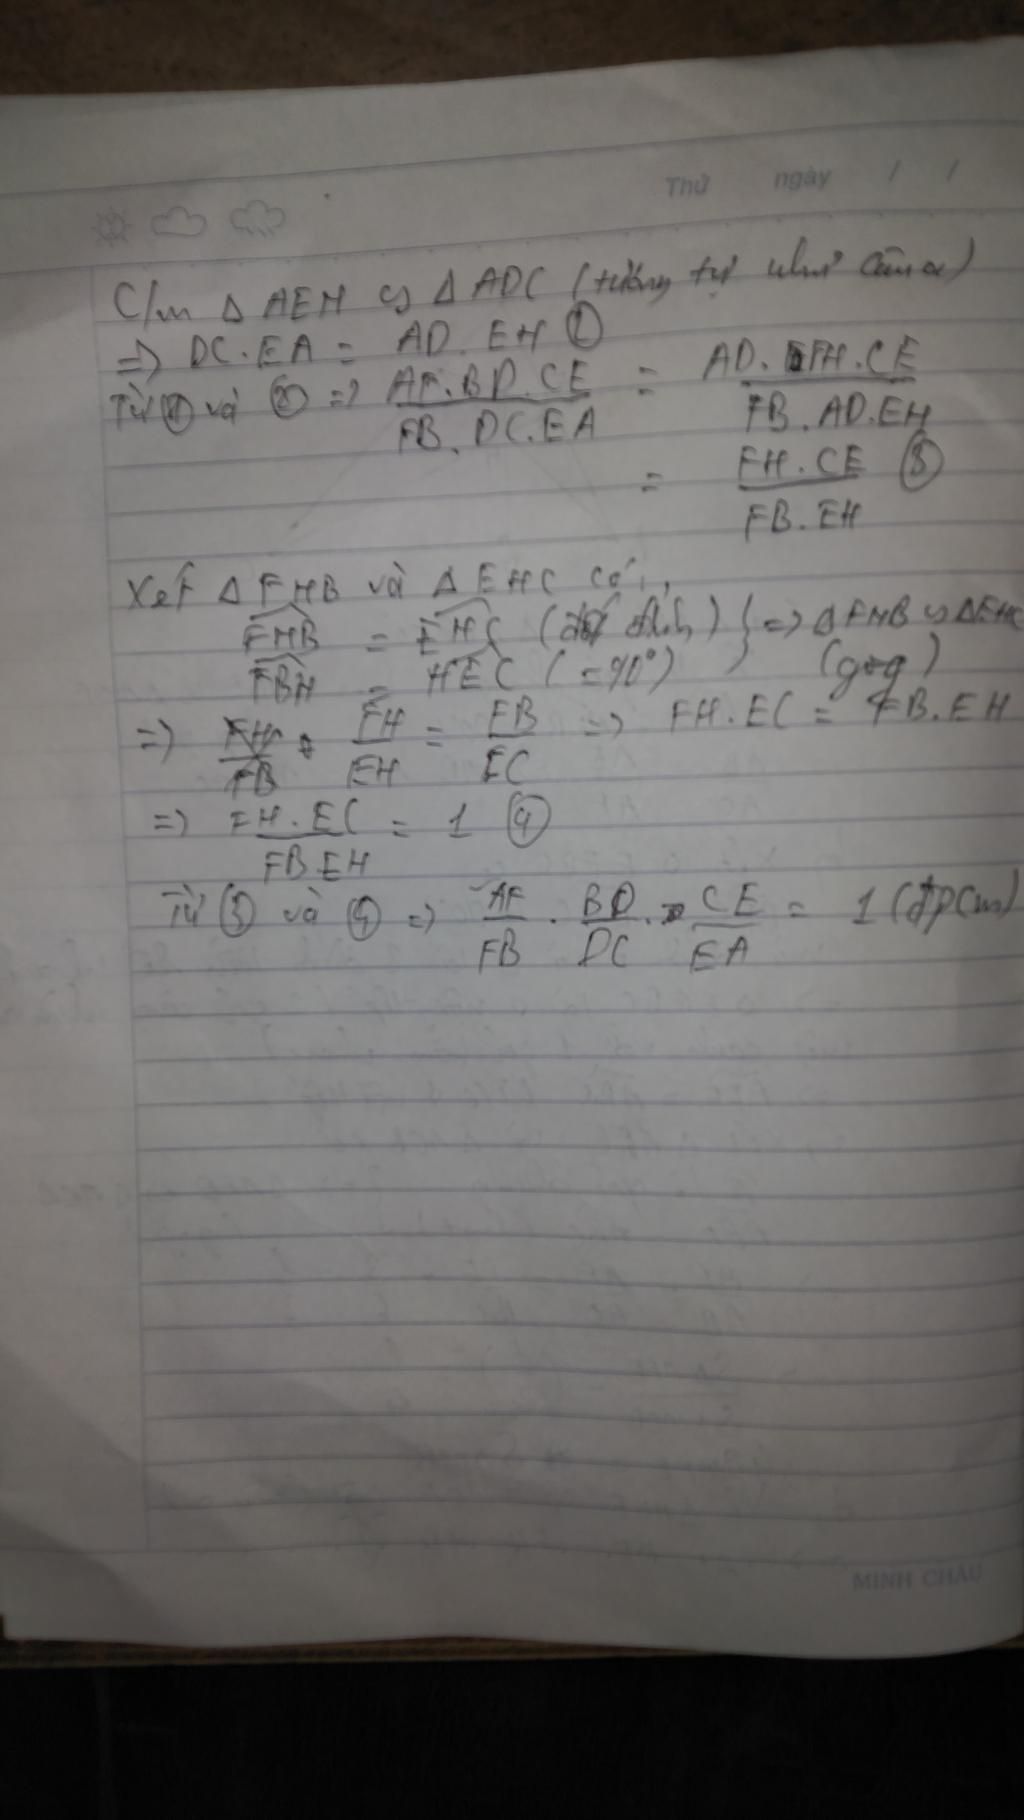 Thứ ngày / /
C/m Δ AEH ∽ Δ ADC (tương tự như câu a)
=> DC.EA = AD.EH ②
Từ ① và ② => AF.BD.CE / FB.DC.EA = AD.FH.CE / FB.AD.EH
= FH.CE / FB.EH ③
Xét Δ FHB và Δ EHC có:
FHB = EHC (đối đỉnh) } => Δ FHB ∽ Δ EHC
FBH = HEC (=90°) (g.g)
=> FH / EH = FB / EC => FH.EC = FB.EH
=> FH.EC / FB.EH = 1 ④
Từ ③ và ④ => AF / FB . BD / DC . CE / EA = 1 (đpcm)
MINH CHÂU